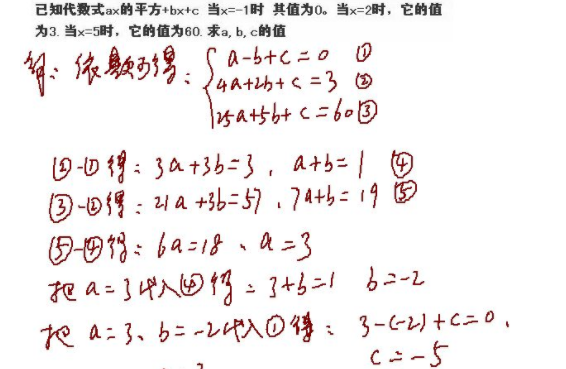 已知代数式ax的平方+bx+c 当x=-1时 其值为0。当x=2时，它的值
为3. 当x=5时，它的值为60. 求a, b, c的值
解：依题可得：{a-b+c=0 ①
4a+2b+c=3 ②
25a+5b+c=60 ③
②-①得：3a+3b=3，a+b=1 ④
③-②得：21a+3b=57，7a+b=19 ⑤
⑤-④得：6a=18、a=3
把a=3代入④得：3+b=1 b=-2
把a=3、b=-2代入①得：3-(-2)+c=0，
c=-5